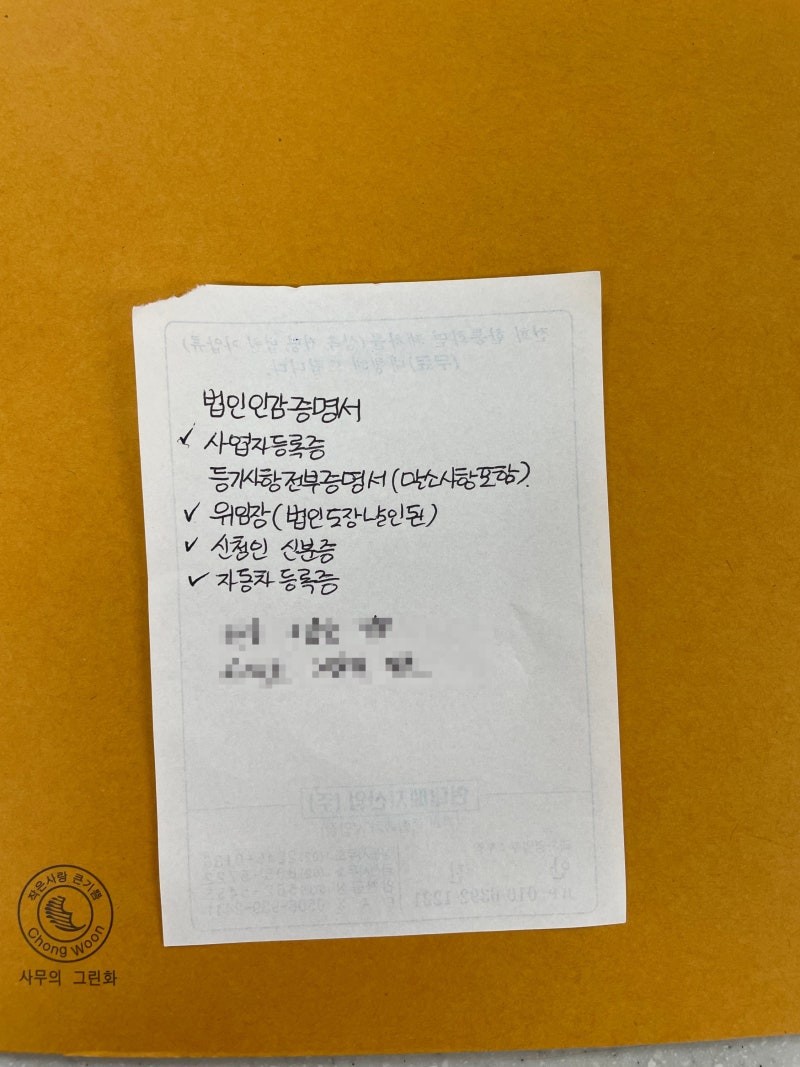 법인인감증명서
✓ 사업자등록증
등기사항전부증명서(말소사항포함).
✓ 위임장(법인도장날인된)
✓ 신청인 신분증
✓ 자동차등록증
작은사랑 큰기쁨
Chong Woon
사무의 그린화